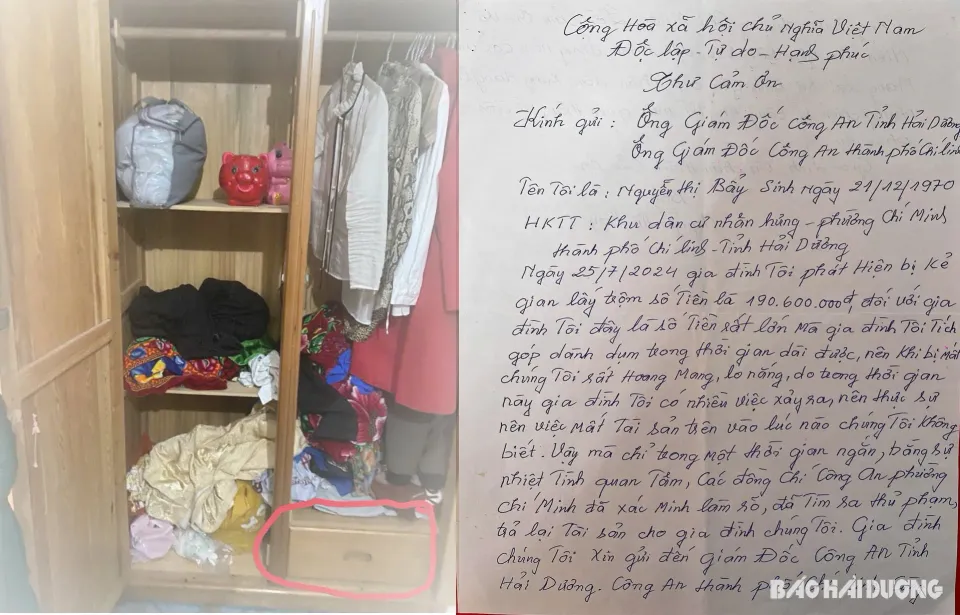 Cộng Hòa xã hội chủ nghĩa Việt Nam
Độc lập - Tự do - Hạnh phúc
Thư Cảm Ơn
Kính gửi : Ông Giám Đốc Công An Tỉnh Hải Dương
Ông Giám Đốc Công An thành phố Chí Linh
Tên Tôi là : Nguyễn Thị Bẩy Sinh Ngày 21/12/1970
HKTT : Khu dân cư nhân hưng - phường Chí Minh
thành phố Chí linh - Tỉnh Hải Dương
Ngày 25/7/2024 gia đình Tôi phát Hiện bị Kẻ
gian lấy trộm số Tiền là 190.600.000đ, đối với gia
đình Tôi đây là số Tiền rất lớn mà gia đình Tôi Tích
góp dành dụm trong thời gian dài được, nên Khi bị mất
chúng Tôi rất Hoang Mang, lo nắng, do trong thời gian
này gia đình Tôi có nhiều việc xảy ra, nên thực sự
nên việc mất Tài sản trên vào lúc nào chúng Tôi Không
biết. Vậy mà chỉ trong một thời gian ngắn, bằng sự
nhiệt Tình quan Tâm, Các đồng Chí Công An phường
chí Minh đã xác Minh làm rõ, đã Tìm ra thủ phạm,
trả lại Tài sản cho gia đình chúng Tôi. Gia đình
chúng Tôi Xin gửi đến giám Đốc Công An Tỉnh
Hải Dương. Công An thành phố
BÁO HẢI DƯƠNG